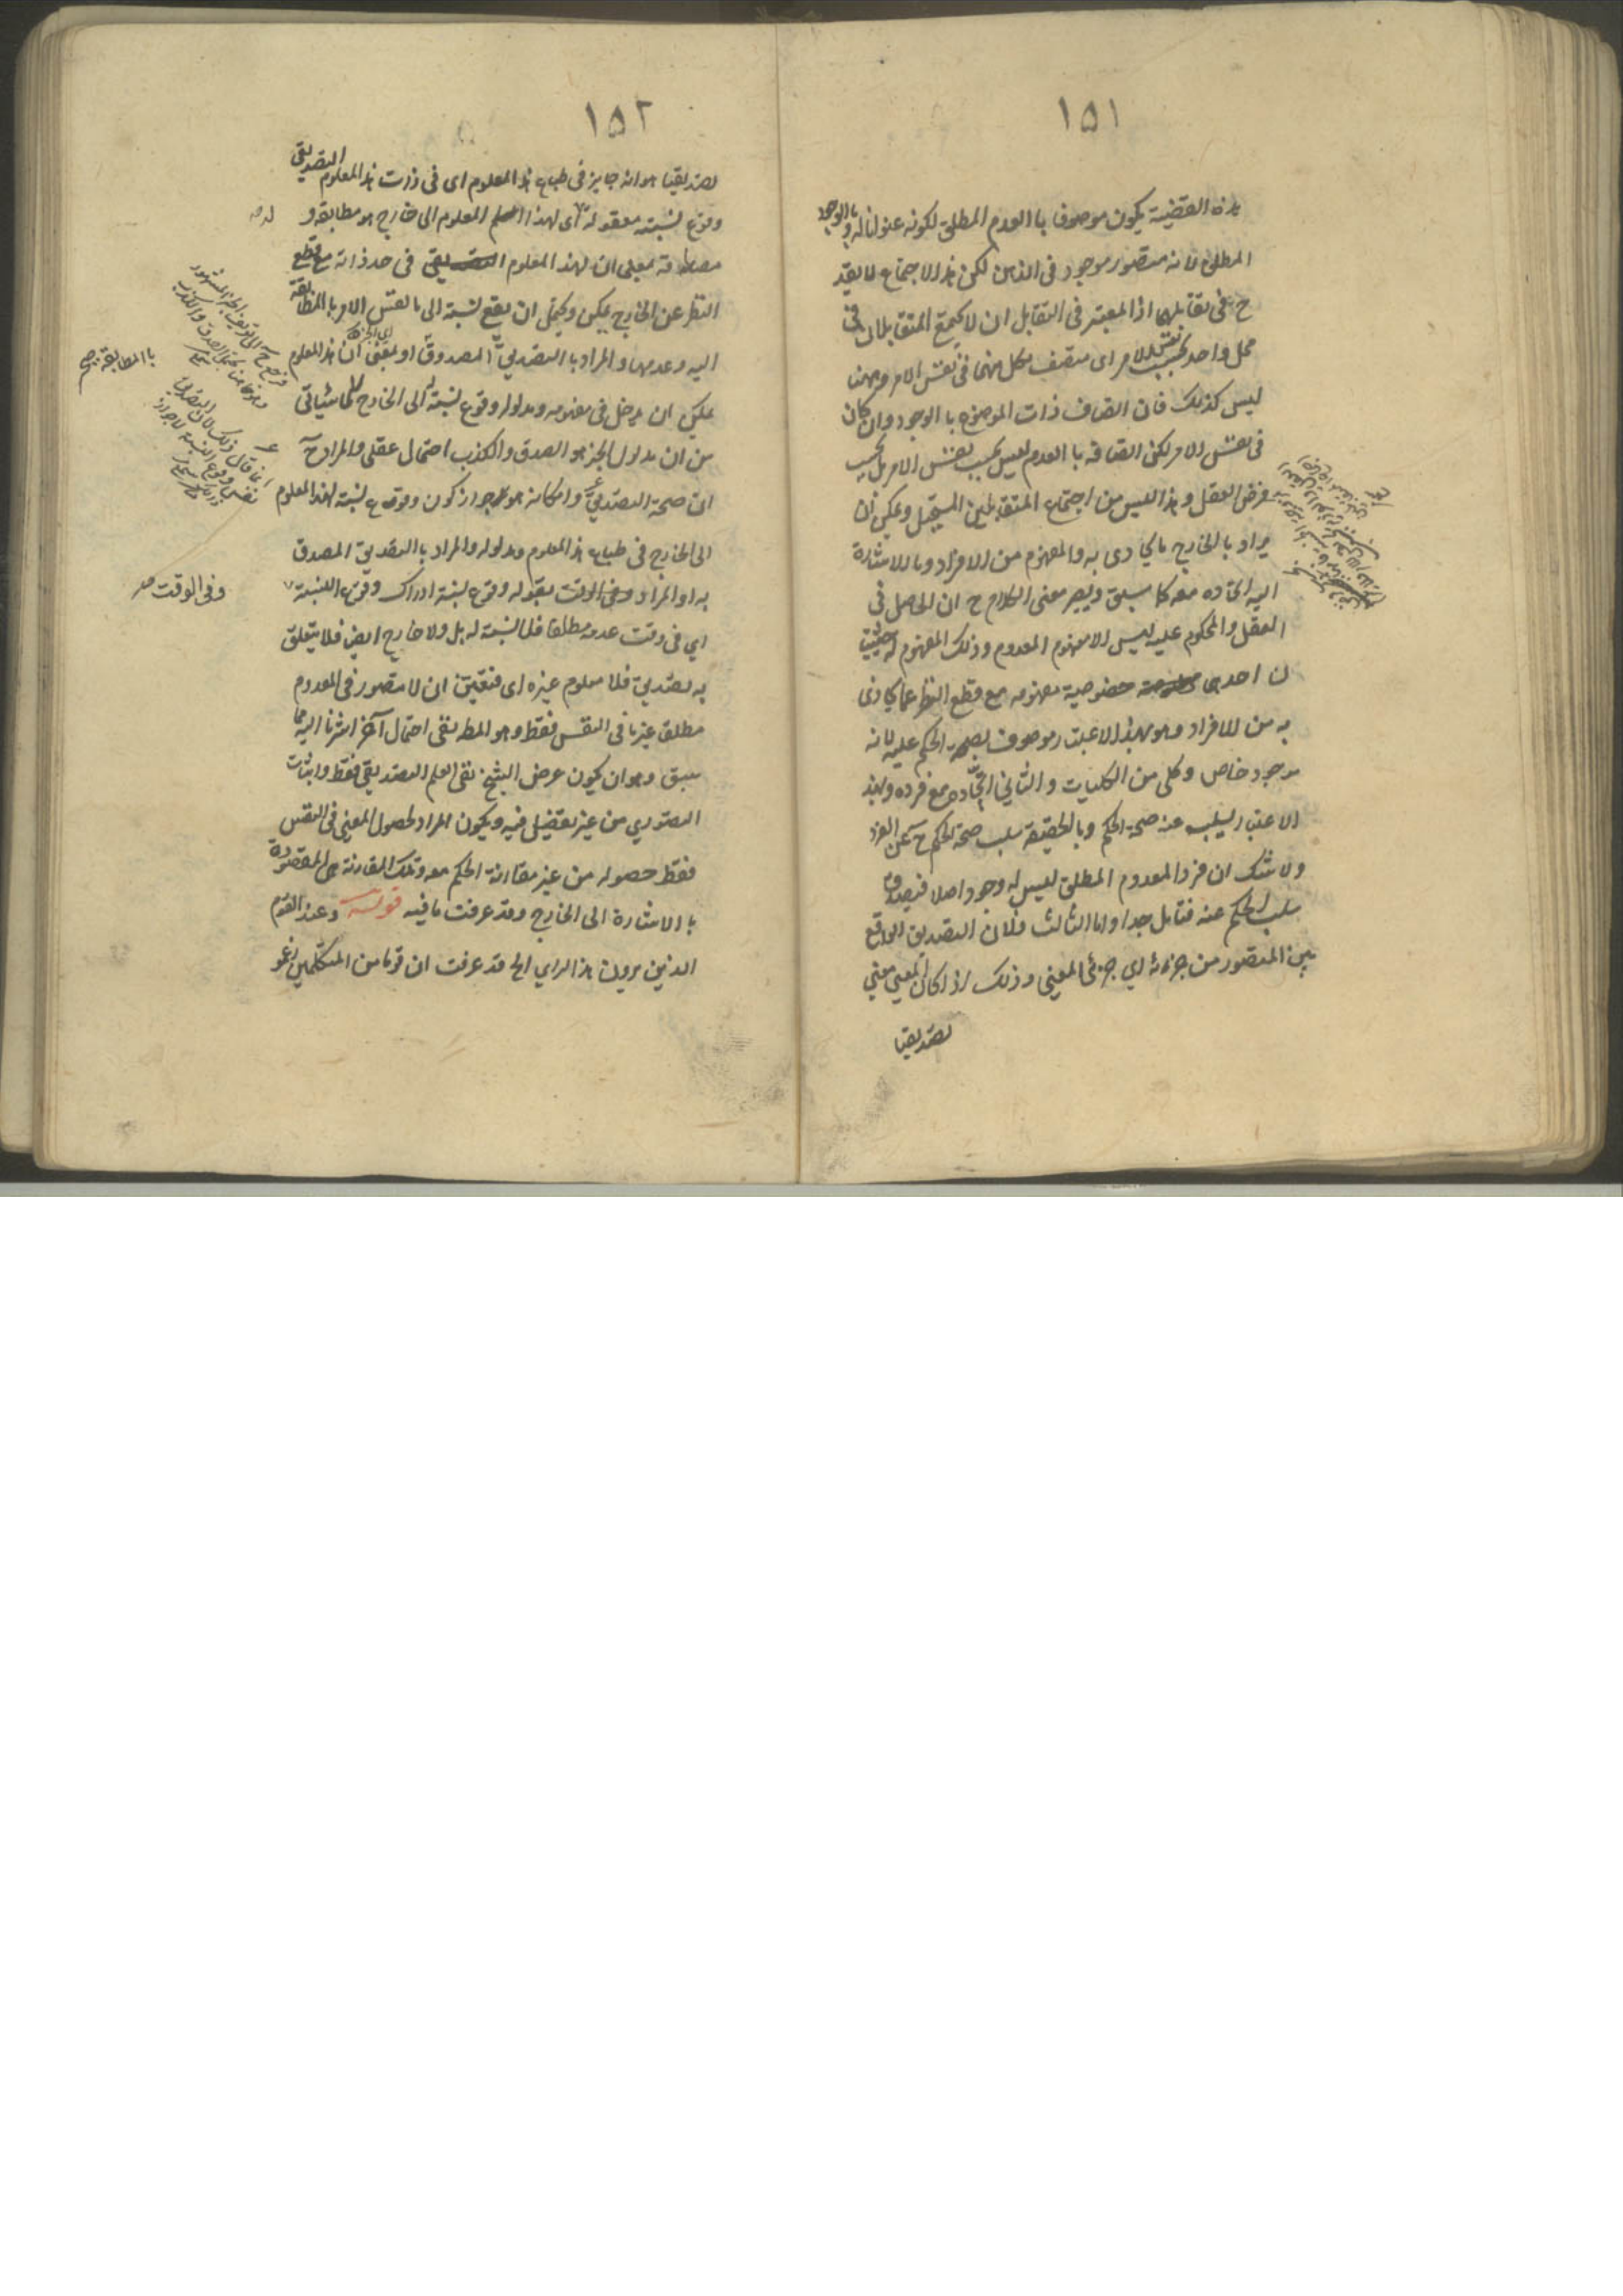 ١٥١
هذه القضية يكون موصوفا با العدم المطلق لكونه عنوانا له وبا الوجود
المطلق لانه متصور موجود فى الذهن لكن هذا الاجتماع لا يقدح
ح فى تقابلهما اذ المعتبر فى التقابل ان لا يجتمع المتقابلان فى
محل واحد بحسب نفس الامر اى متصف بكل منهما فى نفس الامر وههنا
ليس كذلك فان اتصاف ذات الموضوع با الوجود وان كان
فى نفس الامر لكن اتصافه با العدم ليس بحسب نفس الامر بل بحسب
فرض العقل وهذا ليس من اجتماع المتقابلين المستحيل ويمكن ان
يراد با الخارج ما يحاذى به والمفهوم من الافراد وبالاشارة
اليه اتحاده معه كما سبق ويصير معنى الكلام ح ان الحاصل فى
العقل والمحكوم عليه ليس الا مفهوم المعدوم وذلك المفهوم له حيثيت
ان احدى خصوصية مفهومه مع قطع النظر عما يحاذى
به من الافراد وهو بهذا الاعتبار موصوف بصحة الحكم عليه لانه
موجود خاص وكلى من الكليات والثانى اتحاده مع فرده وبهذا
الاعتبار يسلب عنه صحة الحكم وبالحقيقة سلب صحة الحكم ح عن الفرد
ولا شك ان فرد المعدوم المطلق ليس له وجود اصلا فيصدق
سلب الحكم عنه فتامل جدا واما الثالث فلان التصديق الواقع
بين المتصور من جزئه اى جزئى المعنى وذلك اذا كان المعنى معنى
تصديقيا
١٥٢
تصديقيا هو انه جايز فى طباع هذا المعلوم اى فى ذات هذا المعلوم التصديقى
وقوع نسبته معقولة اى لهذا المعلوم الى خارج هو مطابقه و
له صه
مصادقه بمعنى ان لهذا المعلوم فى حد ذاته مع قطع
النظر عن الخارج يمكن ويحتمل ان يقع نسبته الى ما نفس الامر با المطابقة
اليه وعدمها والمراد با التصديق المصدوق او بمعنى ان هذا المعلوم
با المطابقة صح
يمكن ان يدخل فى مفهومه ومدلوله وقوع نسبته الى الخارج كما سيأتى
من ان مدلول الخبر هو الصدق والكذب احتمال عقلى والمراد ح
ان صحة التصديق وامكانه هو جواز كون وقوع نسبته لهذا المعلوم
الى الخارج فى طباع هذا المعلوم ومدلوله والمراد با التصديق المصدق
به او المراد وفى الوقت بقوله وقوع نسبته ادراك وقوع النسبة
وفى الوقت صه
اي فى وقت عدمه مطلقا فلا نسبته له بل ولا خارج ايض فلا يتعلق
به تصديق فلا معلوم غيره اى فتعين ان لا متصور فى المعدوم
مطلق غير ما فى النفس فقط وهو المط بقى احتمال آخر اشرنا اليه مما
سبق وهو ان يكون غرض الشيخ نفى العلم التصديقى فقط واثبات
التصوري من غير تفصيل فيه ويكون المراد بحصول المعنى فى النفس
فقط حصوله من غير مقارنة الحكم معه وتلك المقارنة هى المقصودة
با الاشارة الى الخارج وقد عرفت ما فيه قوله وعند القوم
الذين يرون هذا الراي الخ قد عرفت ان قوما من المتكلمين زعمو